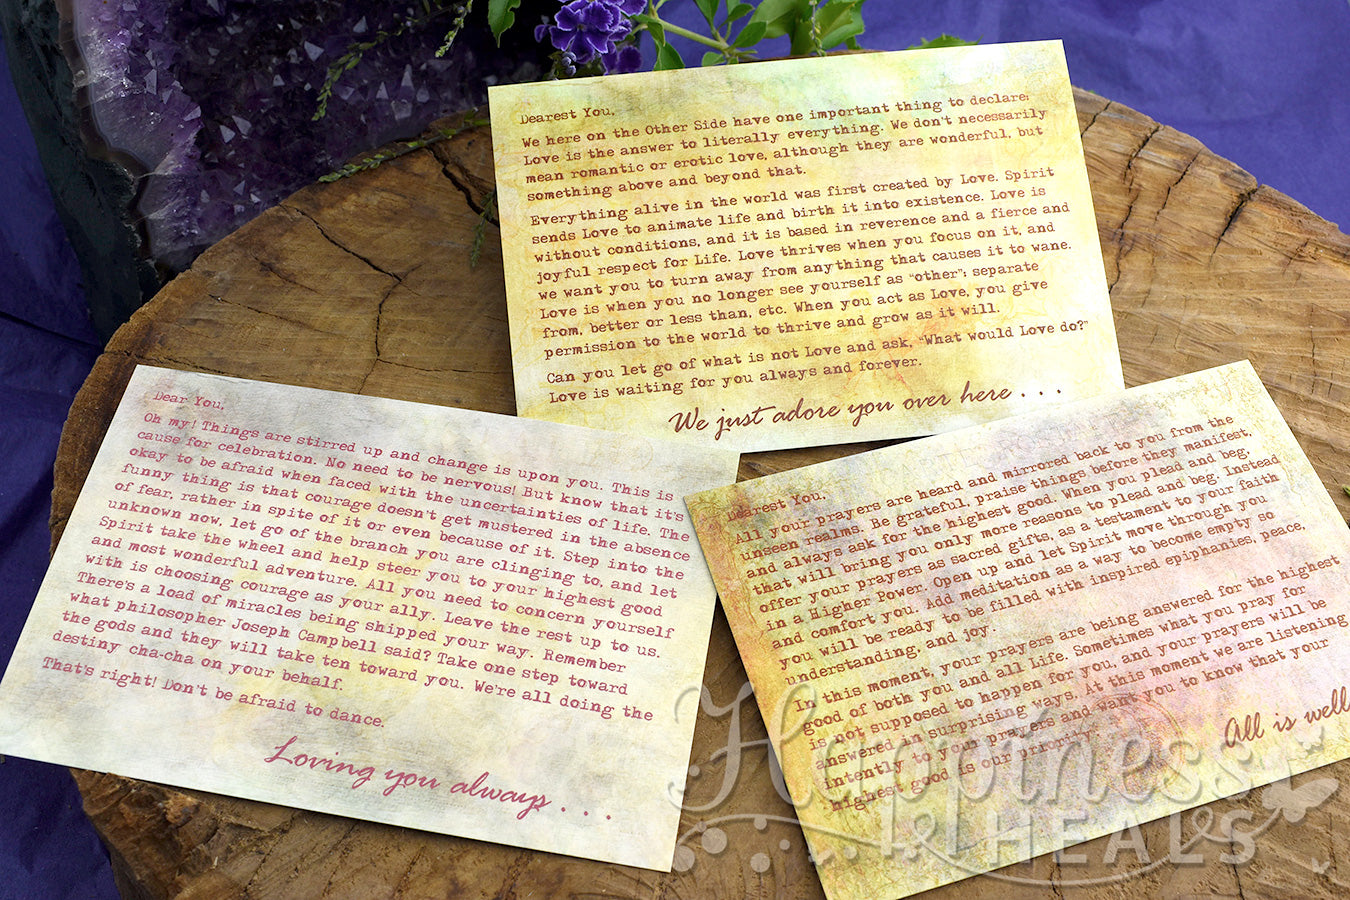 Dearest You,
We here on the Other Side have one important thing to declare:
Love is the answer to literally everything. We don't necessarily
mean romantic or erotic love, although they are wonderful, but
something above and beyond that.
Everything alive in the world was first created by Love. Spirit
sends Love to animate life and birth it into existence. Love is
without conditions, and it is based in reverence and a fierce and
joyful respect for Life. Love thrives when you focus on it, and
we want you to turn away from anything that causes it to wane.
Love is when you no longer see yourself as "other"; separate
from, better or less than, etc. When you act as Love, you give
permission to the world to thrive and grow as it will.
Can you let go of what is not Love and ask, "What would Love do?"
Love is waiting for you always and forever.
We just adore you over here . . .
Dear You,
Oh my! Things are stirred up and change is upon you. This is
cause for celebration. No need to be nervous! But know that it's
okay to be afraid when faced with the uncertainties of life. The
funny thing is that courage doesn't get mustered in the absence
of fear, rather in spite of it or even because of it. Step into the
unknown now, let go of the branch you are clinging to, and let
Spirit take the wheel and help steer you to your highest good
and most wonderful adventure. All you need to concern yourself
with is choosing courage as your ally. Leave the rest up to us.
There's a load of miracles being shipped your way. Remember
what philosopher Joseph Campbell said? Take one step toward
the gods and they will take ten toward you. We're all doing the
destiny cha-cha on your behalf.
That's right! Don't be afraid to dance.
Loving you always . . .
Dearest You,
All your prayers are heard and mirrored back to you from the
unseen realms. Be grateful, praise things before they manifest,
and always ask for the highest good. When you plead and beg,
that will bring you only more reasons to plead and beg. Instead
offer your prayers as sacred gifts, as a testament to your faith
in a Higher Power. Open up and let Spirit move through you
and comfort you. Add meditation as a way to become empty so
you will be ready to be filled with inspired epiphanies, peace,
understanding, and joy.
In this moment, your prayers are being answered for the highest
good of both you and all Life. Sometimes what you pray for
is not supposed to happen for you, and your prayers will be
answered in surprising ways. At this moment we are listening
intently to your prayers and want you to know that your
highest good is our priority.
All is well
Happiness
HEALS